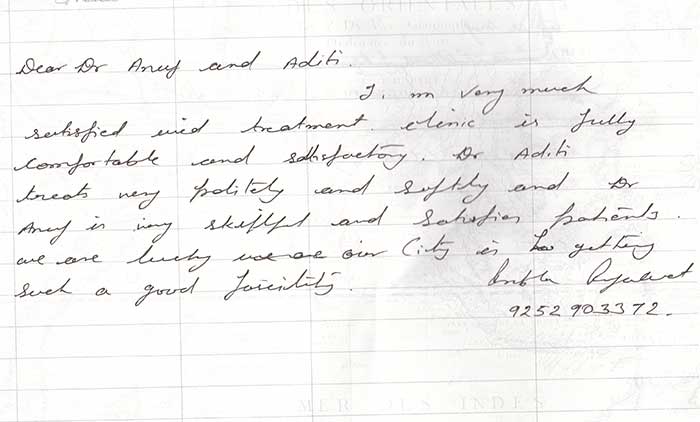 Dear Dr Anuf and Aditi.
I. m very much
satisfied wied treatment. clinic is fully
comfortable and satisfactory. Dr Aditi
treats very politely and softly and Dr
Anuf is very skillful and satisfies patients.
we are lucky our City is getting
such a good faicility.
9252903372.
MER DES INDES